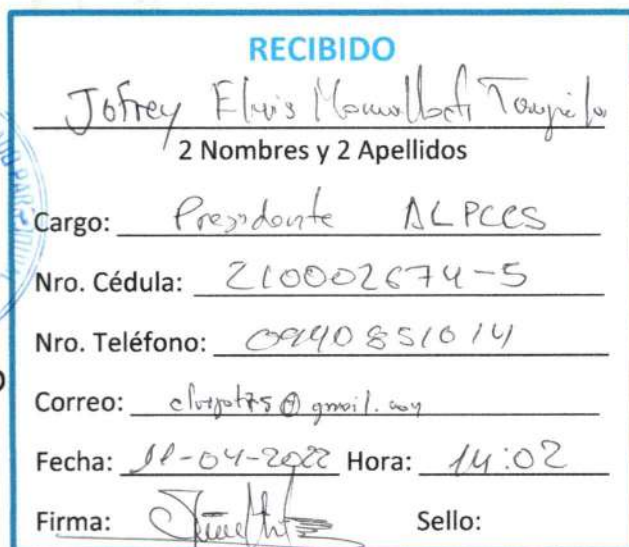 RECIBIDO
Jofrey Elvis
2 Nombres y 2 Apellidos
Cargo: Presidente ALPCCS
Nro. Cédula: 210002674-5
Nro. Teléfono: 0990851014
Correo: @gmail.com
Fecha: 11-04-2022 Hora: 14:02
Firma: Sello: